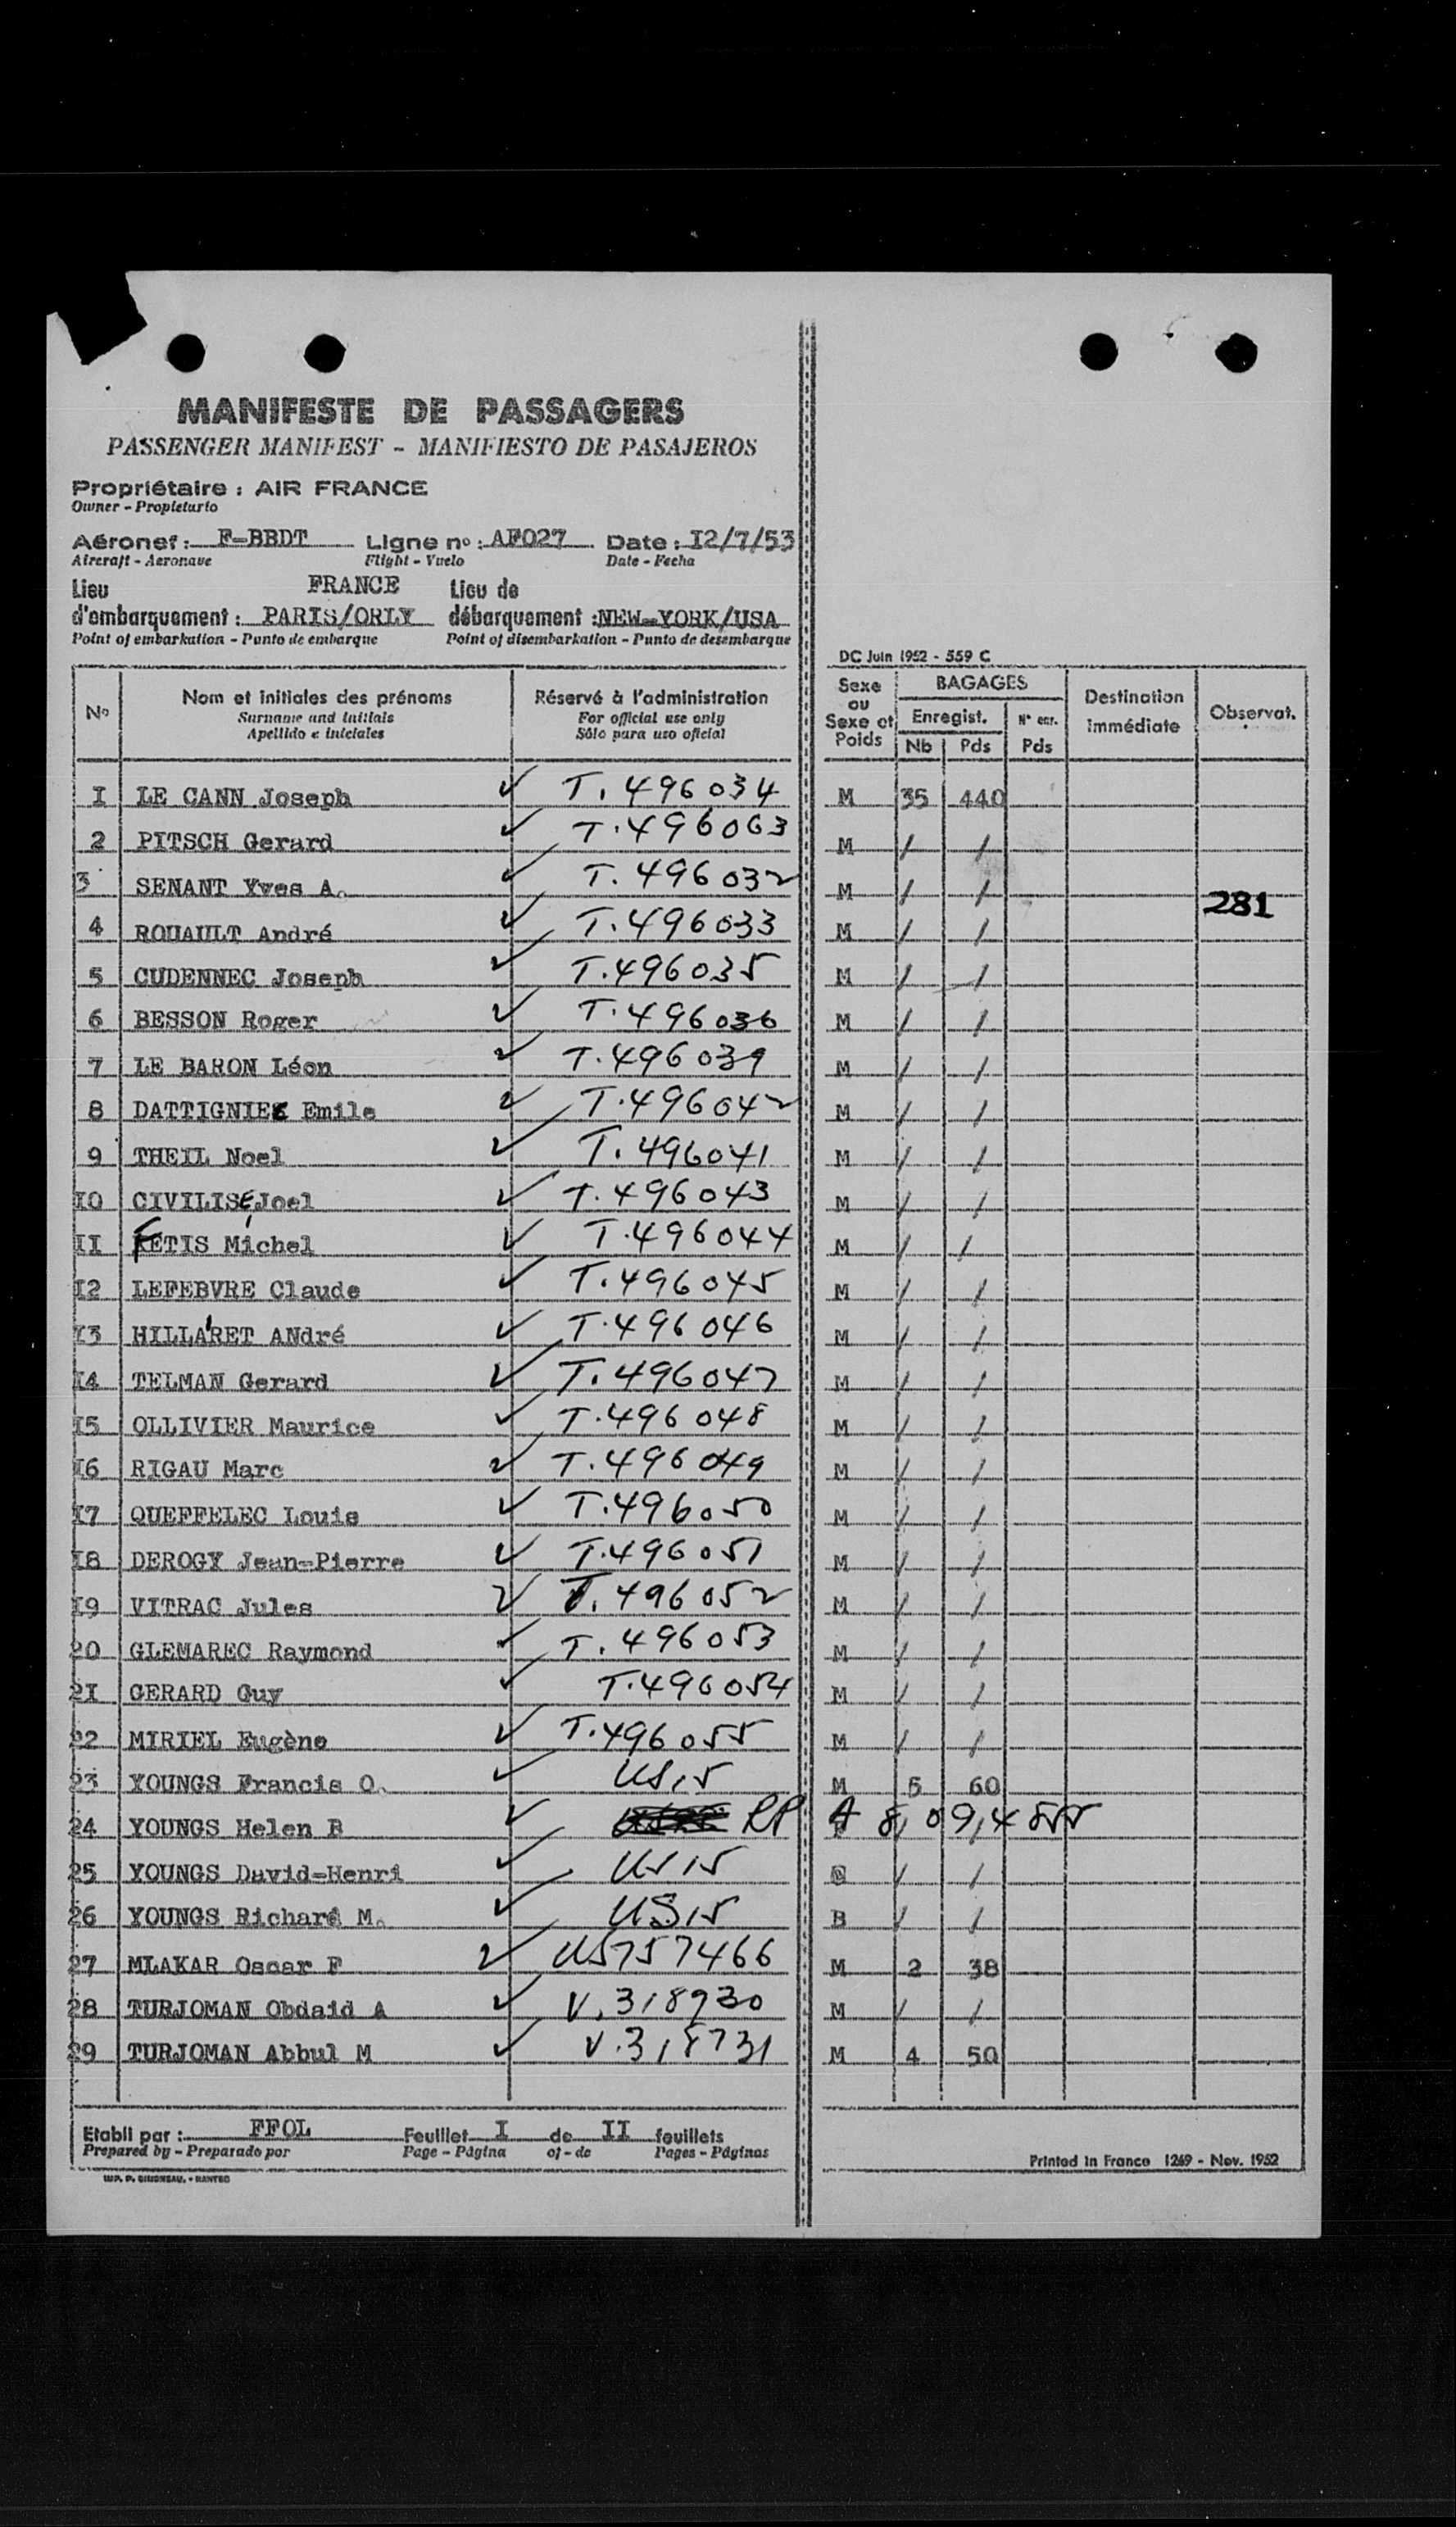 MANIFESTE DE PASSAGERS
PASSENGER MANIFEST - MANIFIESTO DE PASAJEROS
Propriétaire : AIR FRANCE
Owner - Propietario
Aéronef : F-BBDT Ligne no : AF027 Date : I2/7/53
Aircraft - Aeronave Flight - Vuelo Date - Fecha
Lieu FRANCE Lieu de
d'embarquement : PARIS/ORLY débarquement : NEW-YORK/USA
Point of embarkation - Punto de embarque Point of disembarkation - Punto de desembarque
DC Juin 1952 - 559 C
No Nom et initiales des prénoms Réservé à l'administration Sexe ou Sexe et Poids BAGAGES Destination immédiate Observat.
Surname and initials For official use only Enregist. N° enr.
Apellido e iniciales Sólo para uso oficial Nb Pds Pds
I LE CANN Joseph ✓ T. 496034 M 35 440
2 PITSCH Gerard ✓ T.496063 M / /
3 SENANT Yves A. ✓ T. 496032 M / / 281
4 ROUAULT André ✓ T.496033 M / /
5 CUDENNEC Joseph ✓ T.496035 M / /
6 BESSON Roger ✓ T.496036 M / /
7 LE BARON Léon ✓ T.496039 M / /
8 DATTIGNIES Emile ✓ T.496042 M / /
9 THEIL Noel ✓ T. 496041 M / /
I0 CIVILISE, Joel ✓ T.496043 M / /
II FETIS Michel ✓ T.496044 M / /
I2 LEFEBVRE Claude ✓ T.496045 M / /
I3 HILLAIRET ANdré ✓ T.496046 M / /
I4 TELMAN Gerard ✓ T.496047 M / /
I5 OLLIVIER Maurice ✓ T.496048 M / /
I6 RIGAU Marc ✓ T.496049 M / /
I7 QUEFFELEC Louis ✓ T.496050 M / /
I8 DEROGY Jean-Pierre ✓ T.496051 M / /
I9 VITRAC Jules ✓ T.496052 M / /
20 GLEMAREC Raymond ✓ T. 496053 M / /
2I GERARD Guy ✓ T.496054 M / /
22 MIRIEL Eugène ✓ T.496055 M / /
23 YOUNGS Francis O. ✓ US15 M 5 60
24 YOUNGS Helen B ✓ RP A 8,094,855
25 YOUNGS David-Henri ✓ US15 / /
26 YOUNGS Richard M. ✓ US15 B / /
27 MLAKAR Oscar F ✓ US757466 M 2 38
28 TURJOMAN Obdaid A ✓ V.318930 M / /
29 TURJOMAN Abbul M ✓ V.318731 M 4 50
Etabli par : FFOL Feuillet I de II feuillets
Prepared by - Preparado por Page - Página of - de Pages - Páginas
Printed in France 1269 - Nov. 1952